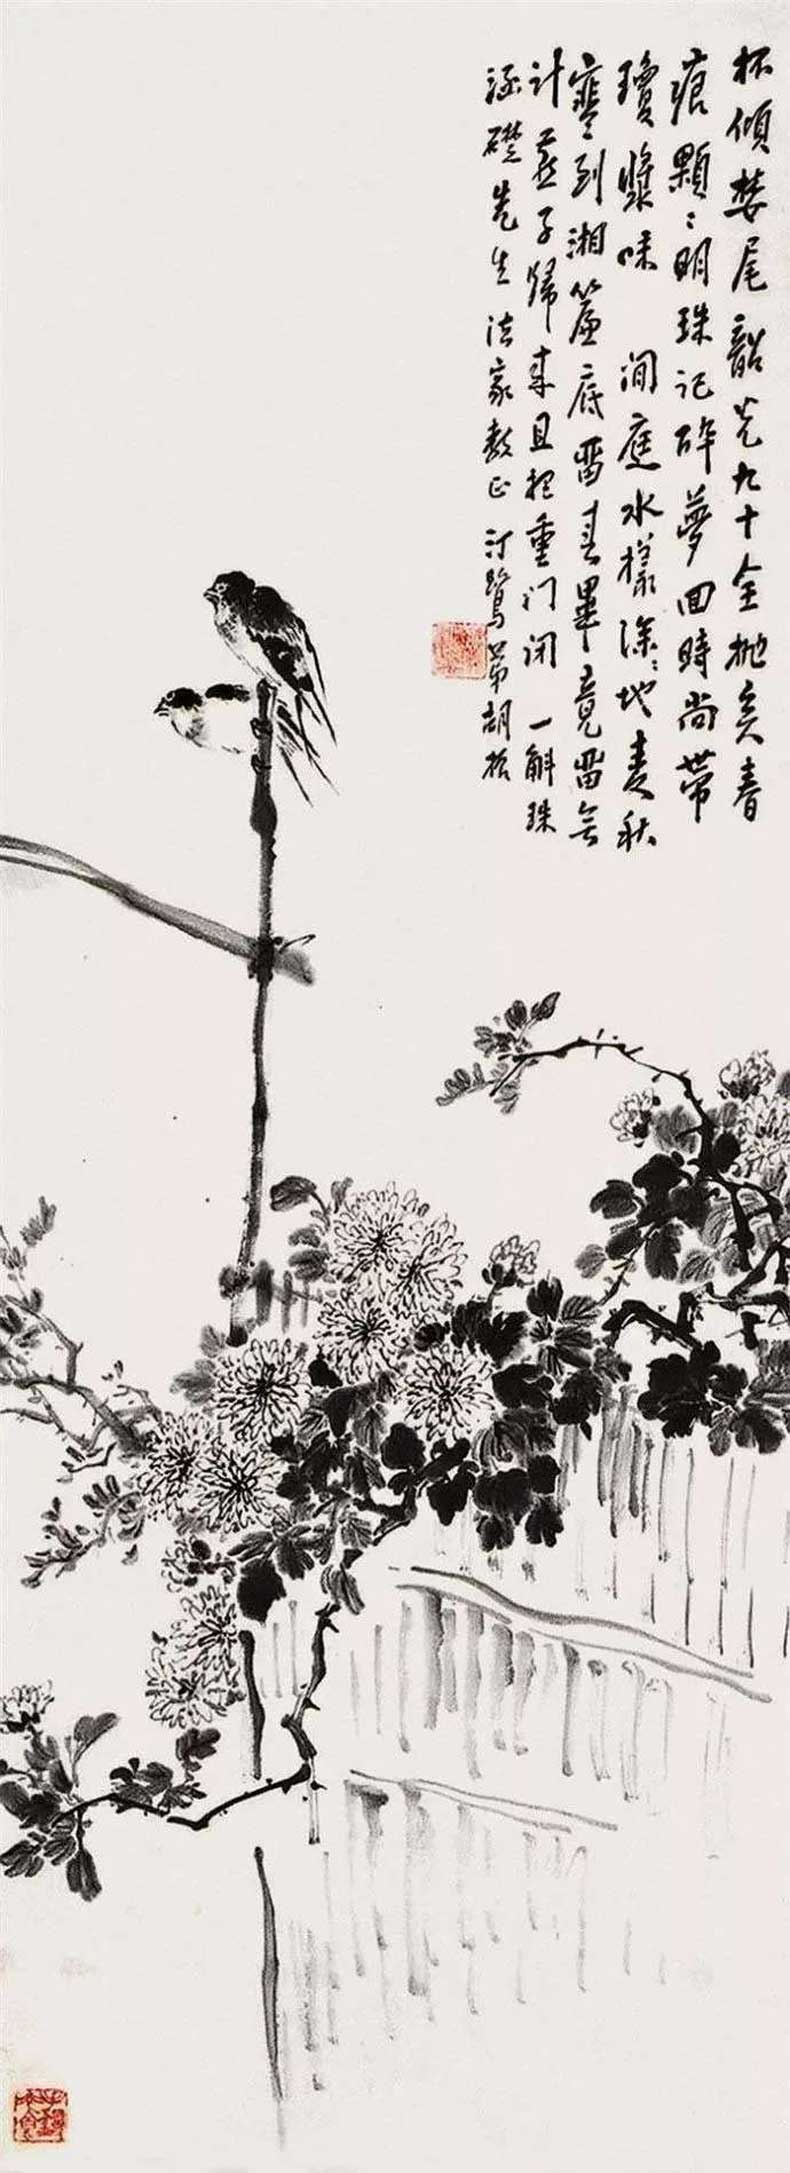 杯傾婪尾韶光九十全抛矣春
痕顆〻明珠記碎夢回時尚帶
瓊漿味 閒庭水樣深〻地麦秋
寒到湘簾底畱春畢竟畱無
計燕子歸来且把重门闭 一斛珠
涵礎先生法家教正 汀鷺弟胡振